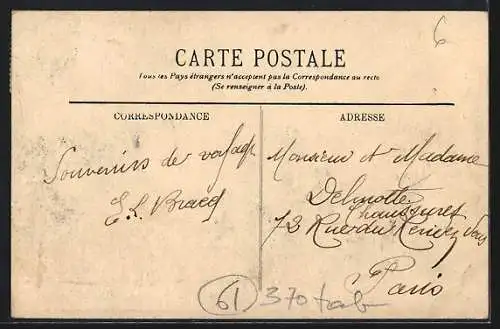 6
CARTE POSTALE
Tous les Pays étrangers n'acceptent pas la Correspondance au recto
(Se renseigner à la Poste).
CORRESPONDANCE
Souvenirs de voyage
E. L.
ADRESSE
Monsieur et Madame
Delmotte
Chaussures
73 Rue du
Paris
61 370